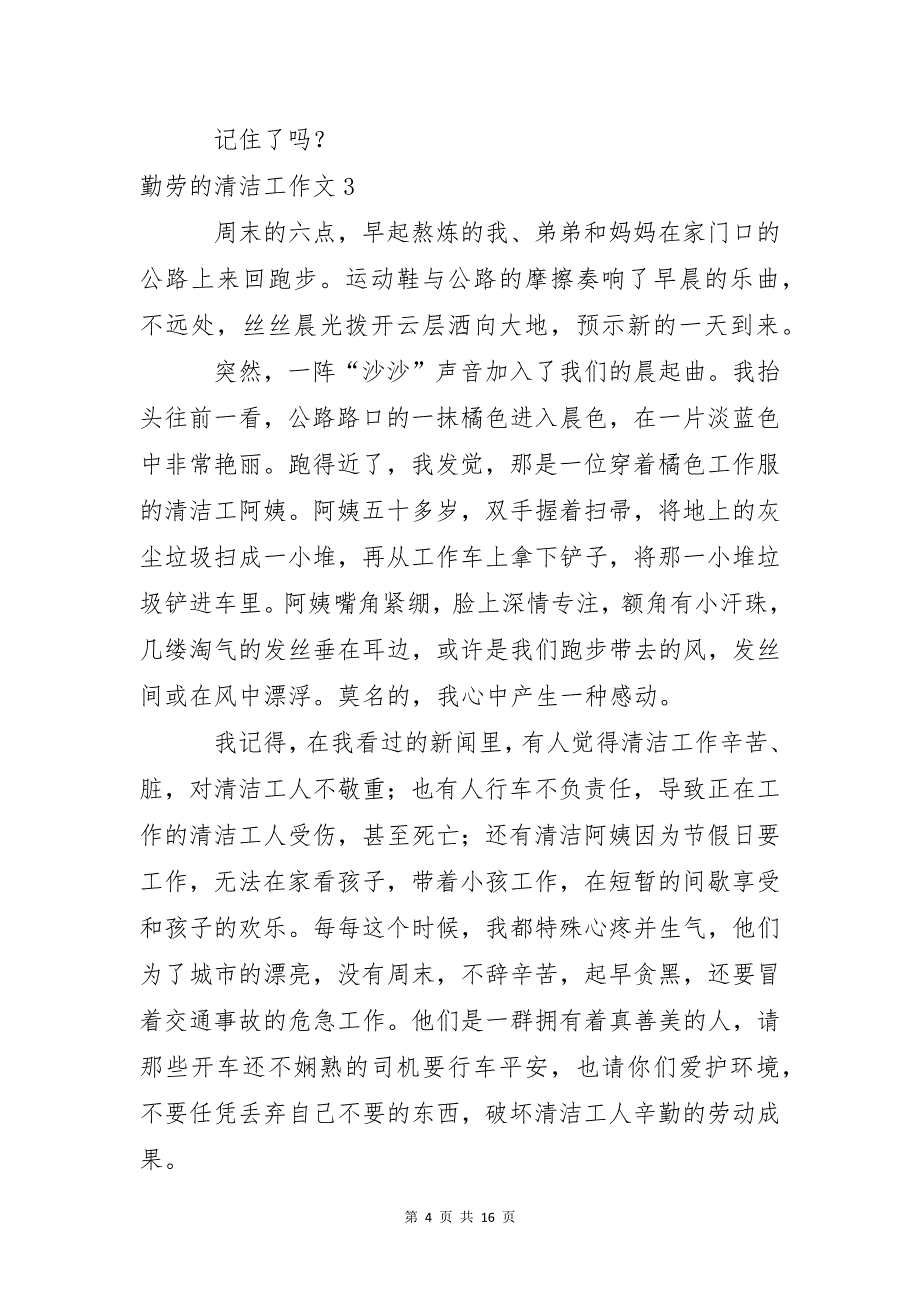 记住了吗？
勤劳的清洁工作文 3
周末的六点，早起熬炼的我、弟弟和妈妈在家门口的
公路上来回跑步。运动鞋与公路的摩擦奏响了早晨的乐曲，
不远处，丝丝晨光拨开云层洒向大地，预示新的一天到来。
突然，一阵“沙沙”声音加入了我们的晨起曲。我抬
头往前一看，公路路口的一抹橘色进入晨色，在一片淡蓝色
中非常艳丽。跑得近了，我发觉，那是一位穿着橘色工作服
的清洁工阿姨。阿姨五十多岁，双手握着扫帚，将地上的灰
尘垃圾扫成一小堆，再从工作车上拿下铲子，将那一小堆垃
圾铲进车里。阿姨嘴角紧绷，脸上深情专注，额角有小汗珠，
几缕淘气的发丝垂在耳边，或许是我们跑步带去的风，发丝
间或在风中漂浮。莫名的，我心中产生一种感动。
我记得，在我看过的新闻里，有人觉得清洁工作辛苦、
脏，对清洁工人不敬重；也有人行车不负责任，导致正在工
作的清洁工人受伤，甚至死亡；还有清洁阿姨因为节假日要
工作，无法在家看孩子，带着小孩工作，在短暂的间歇享受
和孩子的欢乐。每每这个时候，我都特殊心疼并生气，他们
为了城市的漂亮，没有周末，不辞辛苦，起早贪黑，还要冒
着交通事故的危急工作。他们是一群拥有着真善美的人，请
那些开车还不娴熟的司机要行车平安，也请你们爱护环境，
不要任凭丢弃自己不要的东西，破坏清洁工人辛勤的劳动成
果。
第 4 页 共 16 页